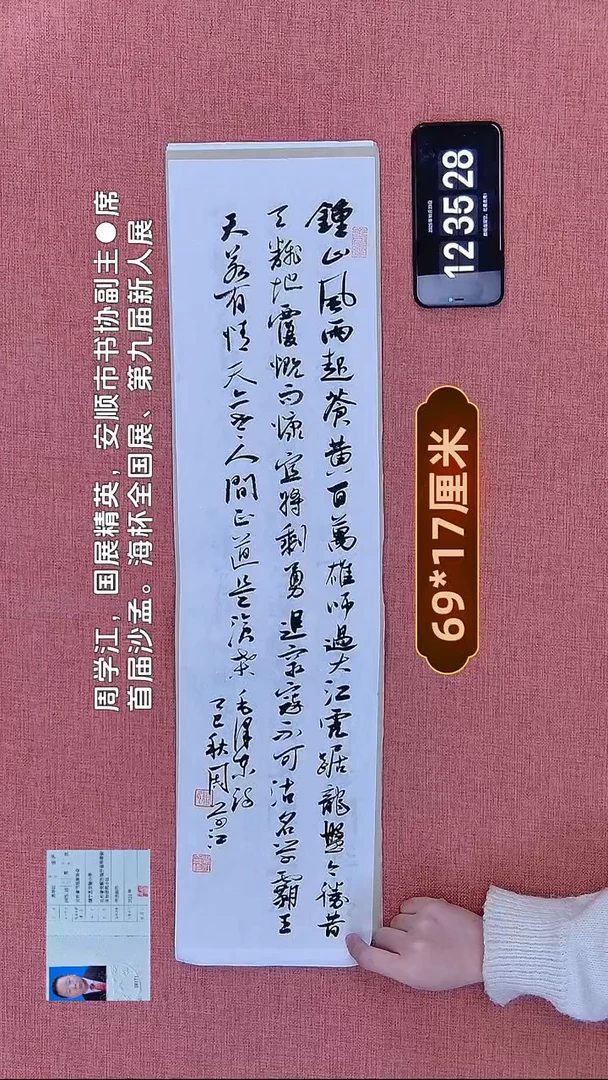 周学江，国展精英，安顺市书协副主●席
首届沙孟。海杯全国展、第九届新人展
鍾山風雨起蒼黄百萬雄師過大江虎踞龍盤今勝昔
天翻地覆慨而慷宜將剩勇追窮寇不可沽名學霸王
天若有情天亦老人間正道是滄桑毛澤東詩
乙巳秋周學江
12 35 28
69*17厘米